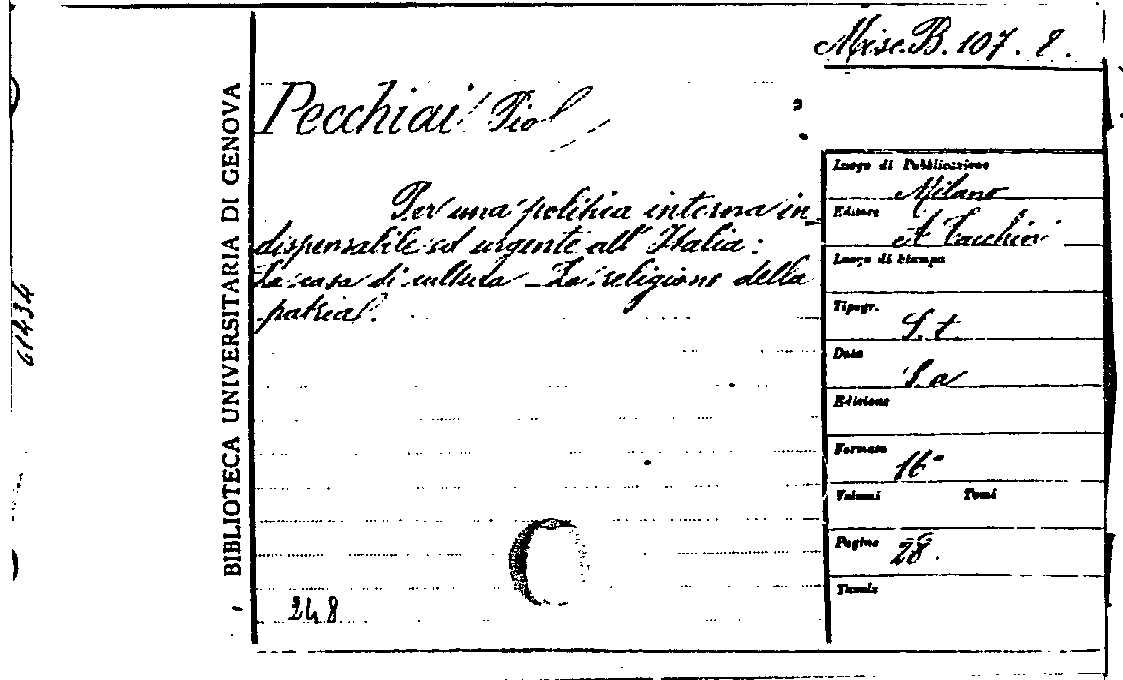 Misc.B.107.8.
Pecchiai Pio
Per una politica interna in-
dispensabile ed urgente all'Italia:
La casa di cultura - La religione della
patria.
248
BIBLIOTECA UNIVERSITARIA DI GENOVA
61434
Luogo di Pubblicazione
Milano
Editore
A Tacchini
Luogo di Stampa
Tipogr.
S.t.
Data
S.a
Edizione
Formato
16°
Volumi Tomi
Pagine
28.
Tavole